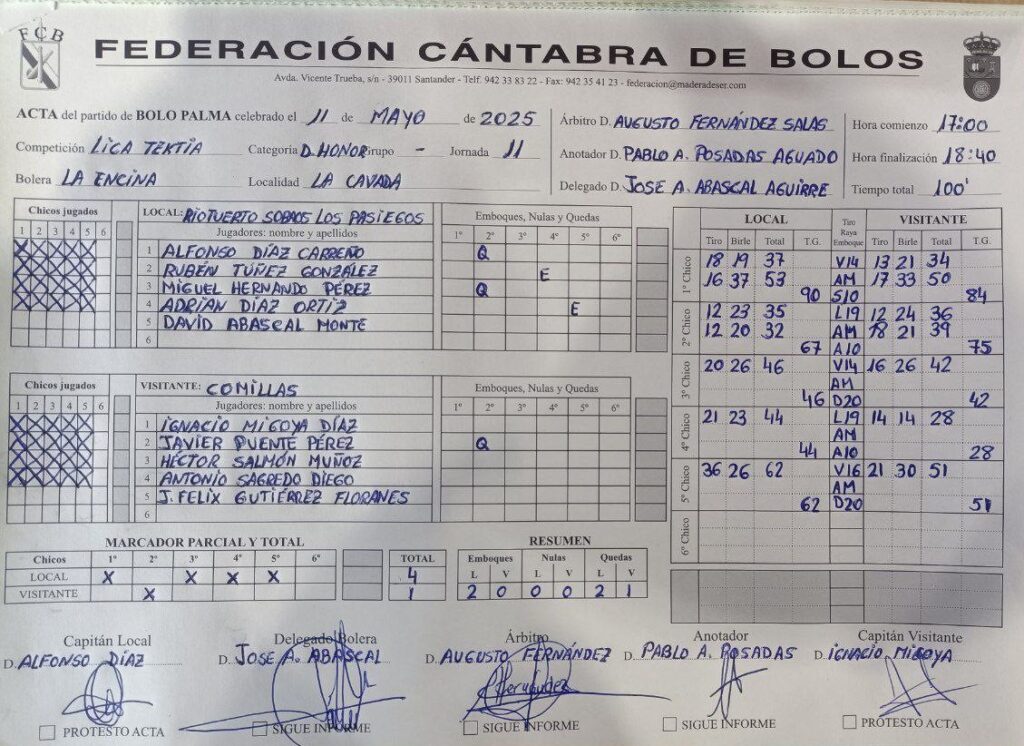 FCB
FEDERACIÓN CÁNTABRA DE BOLOS
Avda. Vicente Trueba, s/n - 39011 Santander - Telf. 942 33 83 22 - Fax: 942 35 41 23 - federacion@maderadeser.com
ACTA del partido de BOLO PALMA celebrado el 11 de MAYO de 2025
Competición LIGA TEKTIA Categoría D. HONOR Grupo - Jornada 11
Bolera LA ENCINA Localidad LA CAVADA
Árbitro D. AUGUSTO FERNÁNDEZ SALAS
Anotador D. PABLO A. POSADAS AGUADO
Delegado D. JOSE A. ABASCAL AGUIRRE
Hora comienzo 17:00
Hora finalización 18:40
Tiempo total 100'
Chicos jugados
1 2 3 4 5 6
X X X X X
X X X X X
X X X X X
X X X X X
LOCAL: RIOTUERTO SOBAOS LOS PASIEGOS
Jugadores: nombre y apellidos
1 ALFONSO DÍAZ CARREÑO
2 RUBÉN TÚÑEZ GONZÁLEZ
3 MIGUEL HERNANDO PÉREZ
4 ADRIÁN DÍAZ ORTIZ
5 DAVID ABASCAL MONTE
6
Emboques, Nulas y Quedas
1º 2º 3º 4º 5º 6º
Q
E
Q
E
Chicos jugados
1 2 3 4 5 6
X X X X X
X X X X X
X X X X X
X X X X X
VISITANTE: COMILLAS
Jugadores: nombre y apellidos
1 IGNACIO MIGOYA DÍAZ
2 JAVIER PUENTE PÉREZ
3 HÉCTOR SALMÓN MUÑOZ
4 ANTONIO SAGREDO DIEGO
5 J. FELIX GUTIÉRREZ FLORANES
6
Emboques, Nulas y Quedas
1º 2º 3º 4º 5º 6º
Q
LOCAL Tiro Raya Emboque VISITANTE
Tiro Birle Total T.G. Tiro Birle Total T.G.
1º Chico
18 19 37 V14 13 21 34
16 37 53 AM 17 33 50
90 S10 84
2º Chico
12 23 35 L19 12 24 36
12 20 32 AM 18 21 39
67 A10 75
3º Chico
20 26 46 V14 16 26 42
AM
46 D20 42
4º Chico
21 23 44 L19 14 14 28
AM
44 A10 28
5º Chico
36 26 62 V16 21 30 51
AM
62 D20 51
6º Chico
MARCADOR PARCIAL Y TOTAL
Chicos 1º 2º 3º 4º 5º 6º TOTAL
LOCAL X X X X 4
VISITANTE X 1
RESUMEN
Emboques Nulas Quedas
L V L V L V
2 0 0 0 2 1
Capitán Local
D. ALFONSO DÍAZ
PROTESTO ACTA
Delegado Bolera
D. JOSE A. ABASCAL
SIGUE INFORME
Árbitro
D. AUGUSTO FERNÁNDEZ
Fernández
SIGUE INFORME
Anotador
D. PABLO A. POSADAS
SIGUE INFORME
Capitán Visitante
D. IGNACIO MIGOYA
PROTESTO ACTA